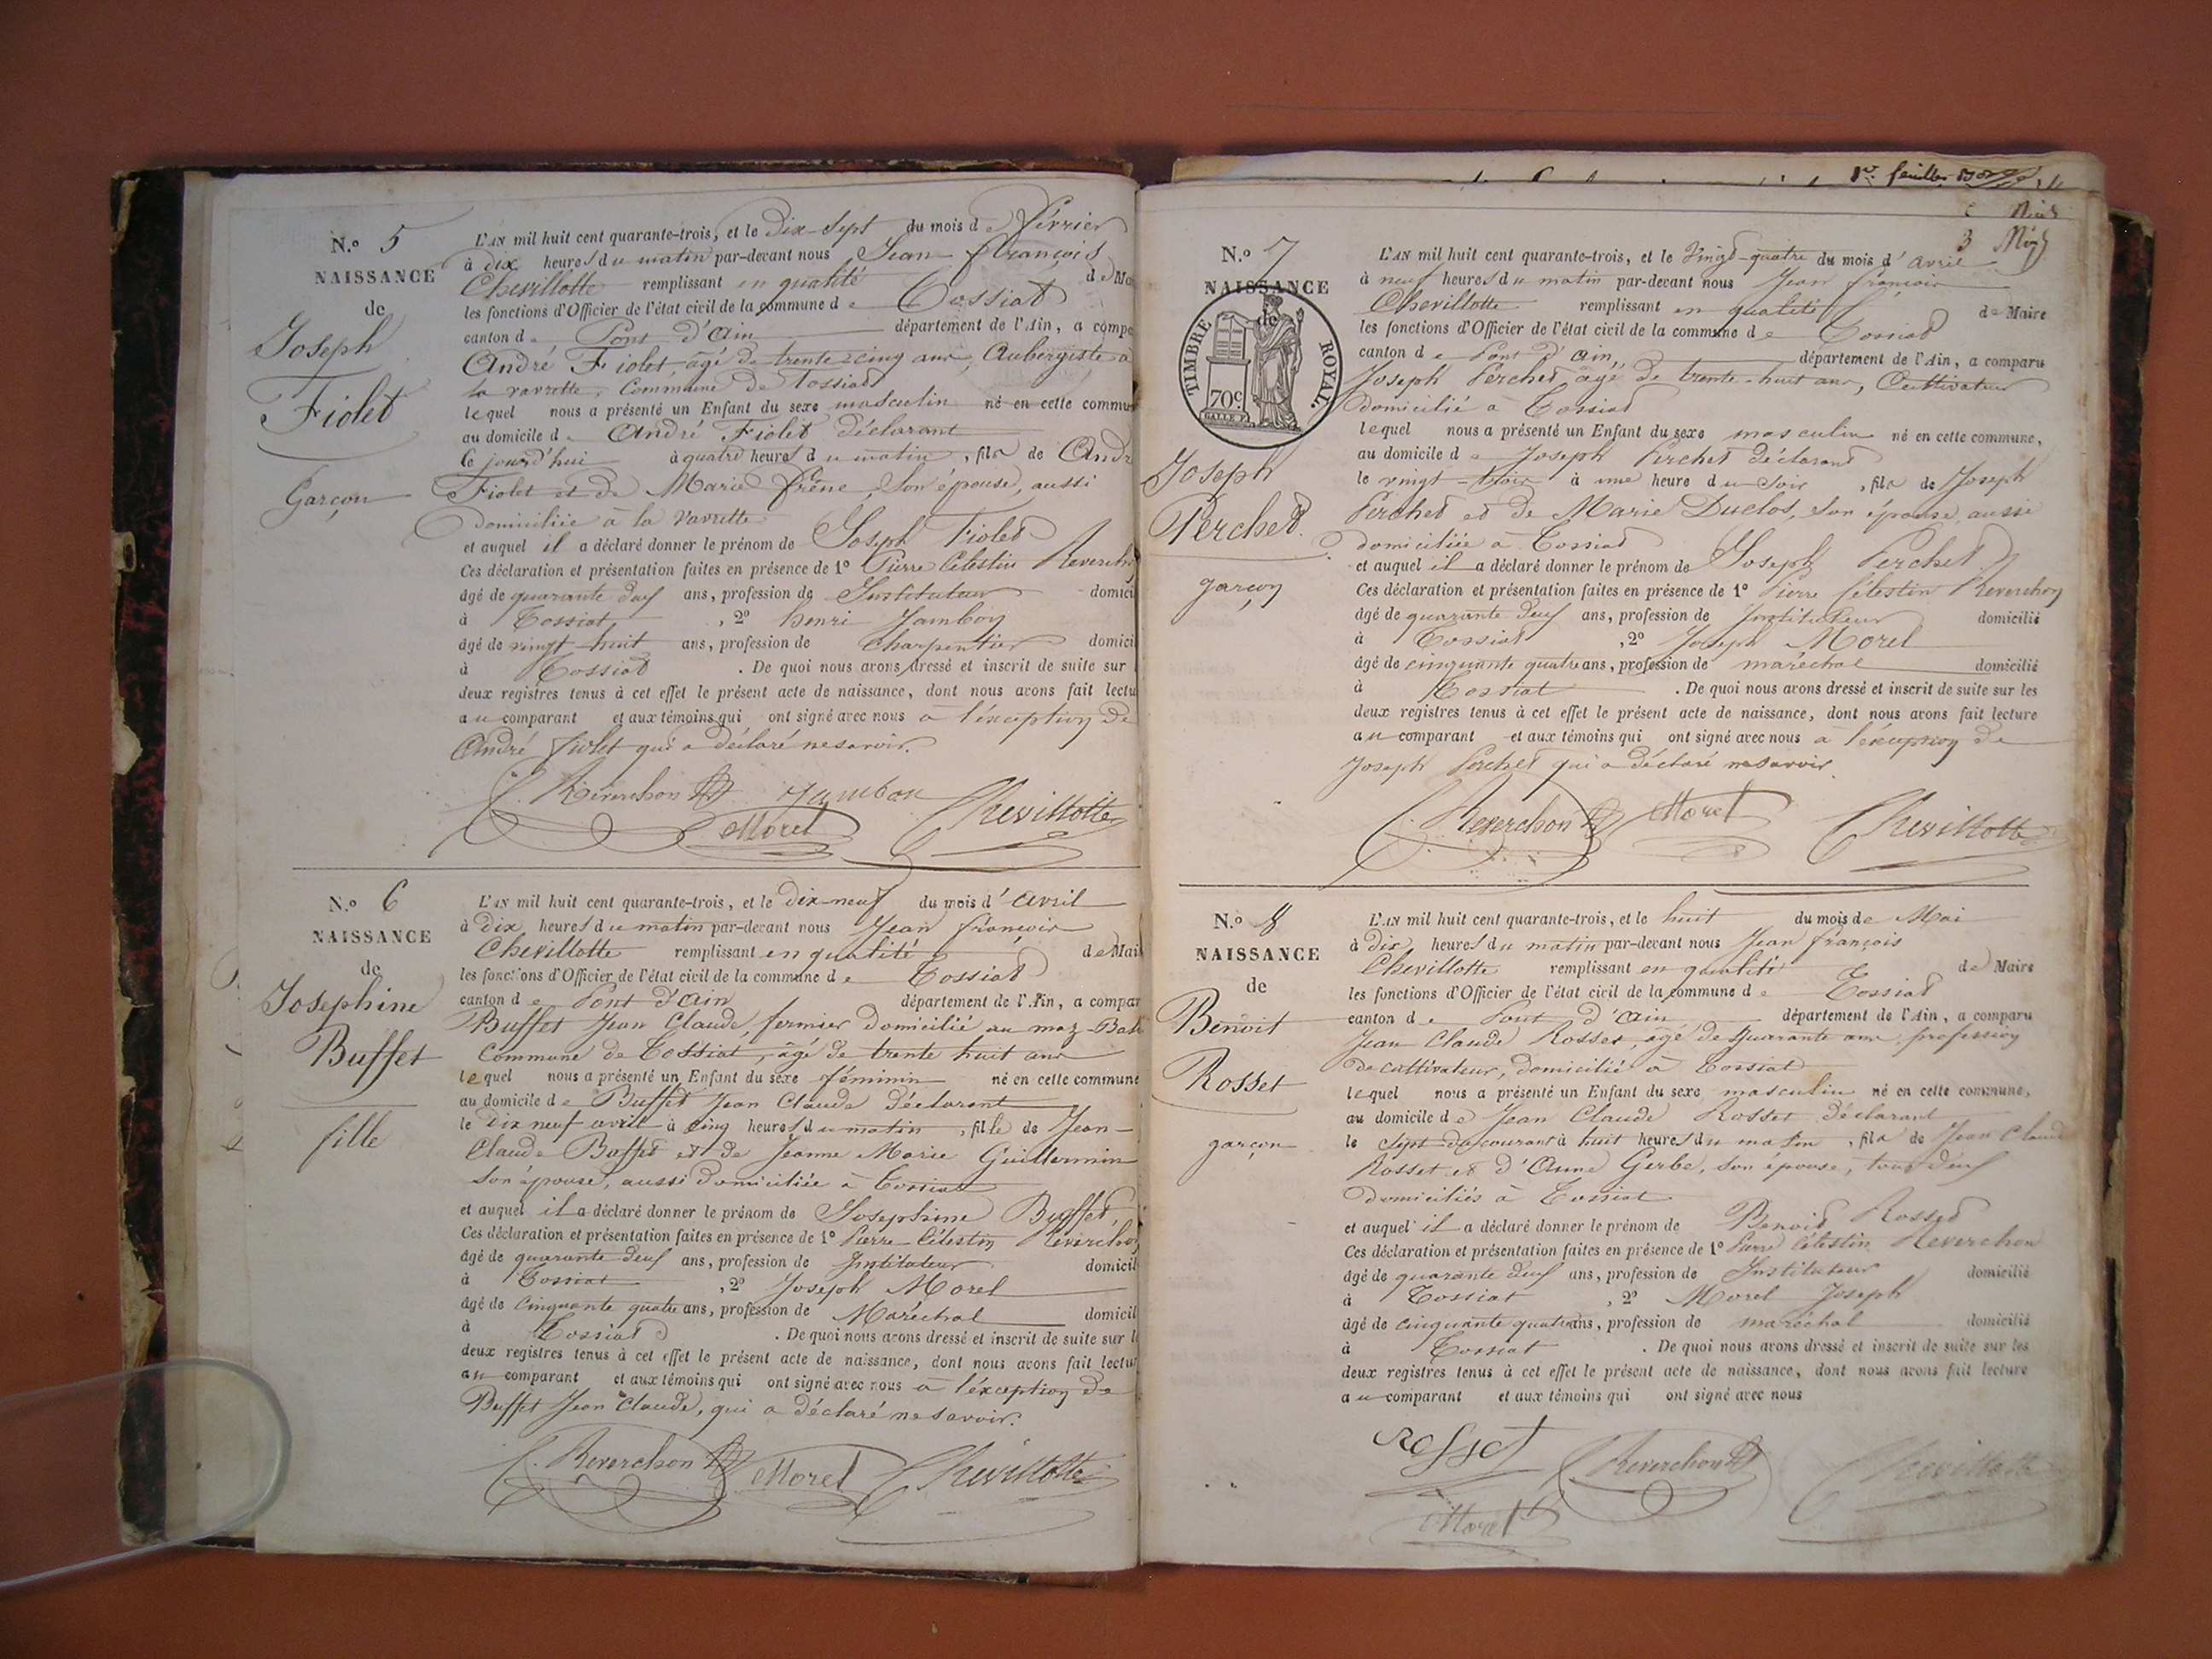 N.o 5
NAISSANCE
de
Joseph
Fiolet
Garçon
L'AN mil huit cent quarante-trois, et le Dix-Sept du mois de Février
à dix heures du matin par-devant nous Jean François
Chevillotte remplissant en qualité de Ma
les fonctions d'Officier de l'état civil de la commune de Tossiat
canton de Pont d'Ain département de l'Ain, a compa
André Fiolet, âgé de trente-cinq ans, Aubergiste à
la ravrette, Commune de Tossiat
lequel nous a présenté un Enfant du sexe masculin né en cette commun
au domicile d André Fiolet déclarant
ce jourd'hui à quatre heures du matin, fils de Andr
Fiolet et de Marie Frêne, Son épouse, aussi
domiciliée à la ravrette
et auquel il a déclaré donner le prénom de Joseph Fiolet
Ces déclaration et présentation faites en présence de 1o Pierre Célestin Reverchon
âgé de quarante deux ans, profession de Instituteur domici
à Tossiat, 2o henri Jambon
âgé de vingt-huit ans, profession de Charpentier domici
à Tossiat. De quoi nous avons dressé et inscrit de suite sur
deux registres tenus à cet effet le présent acte de naissance, dont nous avons fait lectu
au comparant et aux témoins qui ont signé avec nous à l'éxception de
André Fiolet qui a déclaré ne savoir.
C. Reverchon Jambon Chevillotte
Morel
N.o 6
NAISSANCE
de
Josephine
Buffet
fille
L'AN mil huit cent quarante-trois, et le dix-neuf du mois d'avril
à Dix heures du matin par-devant nous Jean françois
Chevillotte remplissant en qualité de Mai
les fonctions d'Officier de l'état civil de la commune de Tossiat
canton de Pont d'Ain département de l'Ain, a compar
Buffet Jean Claude, fermier domicilié au maz-
Commune de Tossiat, âgé de trente huit ans
lequel nous a présenté un Enfant du sexe féminin né en cette commune
au domicile de Buffet Jean Claude Déclarant
le Dix neuf avril à cinq heures du matin, fille de Jean-
Claude Buffet et de Jeanne Marie Guillermin
Son épouse, aussi domiciliée à Tossiat
et auquel il a déclaré donner le prénom de Josephine Buffet,
Ces déclaration et présentation faites en présence de 1o Pierre Célestin Reverchon
âgé de quarante deux ans, profession de Instituteur domicil
à Tossiat, 2o Joseph Morel
âgé de cinquante quatre ans, profession de Maréchal domicil
à Tossiat. De quoi nous avons dressé et inscrit de suite sur l
deux registres tenus à cet effet le présent acte de naissance, dont nous avons fait lectur
au comparant et aux témoins qui ont signé avec nous à l'éxception de
Buffet Jean Claude, qui a déclaré ne savoir.
C. Reverchon Morel Chevillotte
1er feuillet
3
N.o 7
NAISSANCE
de
TIMBRE ROYAL.
70c
Joseph
Perchet
garçon
L'AN mil huit cent quarante-trois, et le Vingt-quatre du mois d'avril
à neuf heures du matin par-devant nous Jean françois
Chevillotte remplissant en qualité de Maire
les fonctions d'Officier de l'état civil de la commune de Tossiat
canton de Pont d'Ain département de l'Ain, a comparu
Joseph Perchet âgé de trente-huit ans, Cultivateur
domicilié à Tossiat
lequel nous a présenté un Enfant du sexe masculin né en cette commune,
au domicile de Joseph Perchet déclarant
le vingt-trois à une heure du Soir, fils de Joseph
Perchet et de Marie Duclos, Son épouse, aussi
domiciliée à Tossiat
et auquel il a déclaré donner le prénom de Joseph Perchet
Ces déclaration et présentation faites en présence de 1o Pierre Célestin Reverchon
âgé de quarante deux ans, profession de Instituteur domicilié
à Tossiat, 2o Joseph Morel
âgé de cinquante quatre ans, profession de maréchal domicilié
à Tossiat. De quoi nous avons dressé et inscrit de suite sur les
deux registres tenus à cet effet le présent acte de naissance, dont nous avons fait lecture
au comparant et aux témoins qui ont signé avec nous à l'éxception de
Joseph Perchet qui a déclaré ne savoir.
C. Reverchon Morel Chevillotte
N.o 8
NAISSANCE
de
Benoit
Rosset
garçon
L'AN mil huit cent quarante-trois, et le huit du mois de Mai
à Dix heures du matin par-devant nous Jean françois
Chevillotte remplissant en qualité de Maire
les fonctions d'Officier de l'état civil de la commune de Tossiat
canton de Pont d'Ain département de l'Ain, a comparu
Jean Claude Rosset, âgé de quarante ans profession
de cultivateur, domicilié à Tossiat
lequel nous a présenté un Enfant du sexe masculin né en cette commune,
au domicile de Jean Claude Rosset déclarant
le Sept du courant à huit heures du matin, fils de Jean Claude
Rosset et d'Anne Gerbe, son épouse, tous deux
domiciliés à Tossiat
et auquel il a déclaré donner le prénom de Benoit Rosset
Ces déclaration et présentation faites en présence de 1o Pierre Célestin Reverchon
âgé de quarante deux ans, profession de Instituteur domicilié
à Tossiat, 2o Morel Joseph
âgé de cinquante quatre ans, profession de maréchal domicilié
à Tossiat. De quoi nous avons dressé et inscrit de suite sur les
deux registres tenus à cet effet le présent acte de naissance, dont nous avons fait lecture
au comparant et aux témoins qui ont signé avec nous
Rosset C. Reverchon Chevillotte
Morel